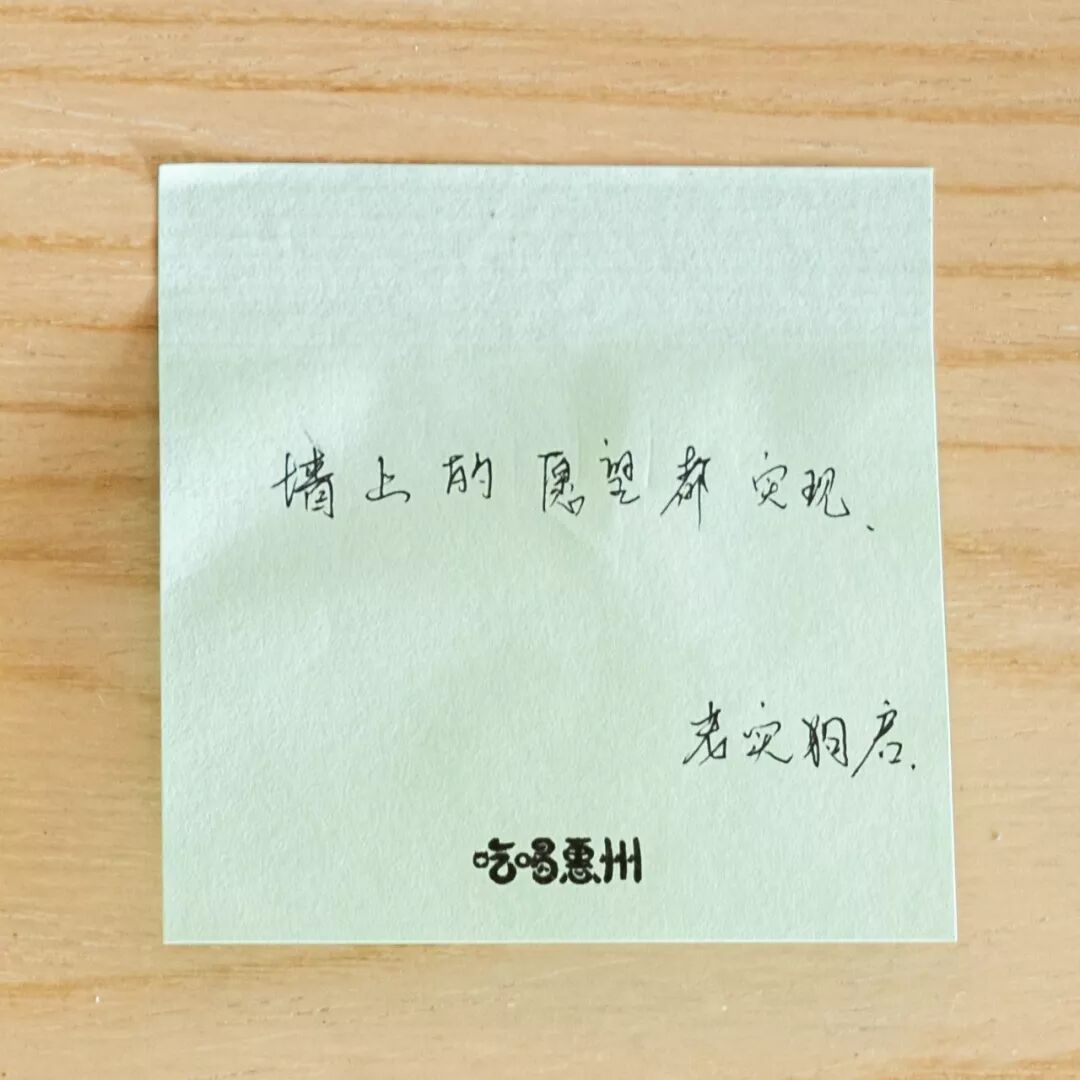 墙上的愿望都实现.
老实狗启.
吃喝惠州